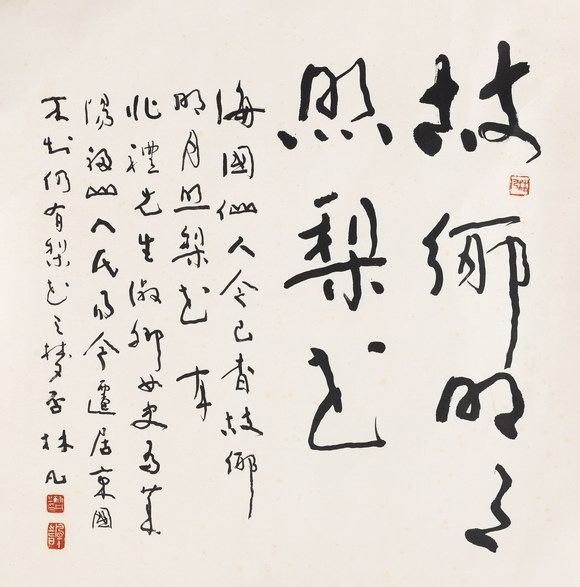 故鄉明月
照梨花
海國仙人今已杳故鄉
明月照梨花
禮先生淑卿女史為萊
陽福山人氏而今遷居東國
不知仍有梨花之夢否林凡